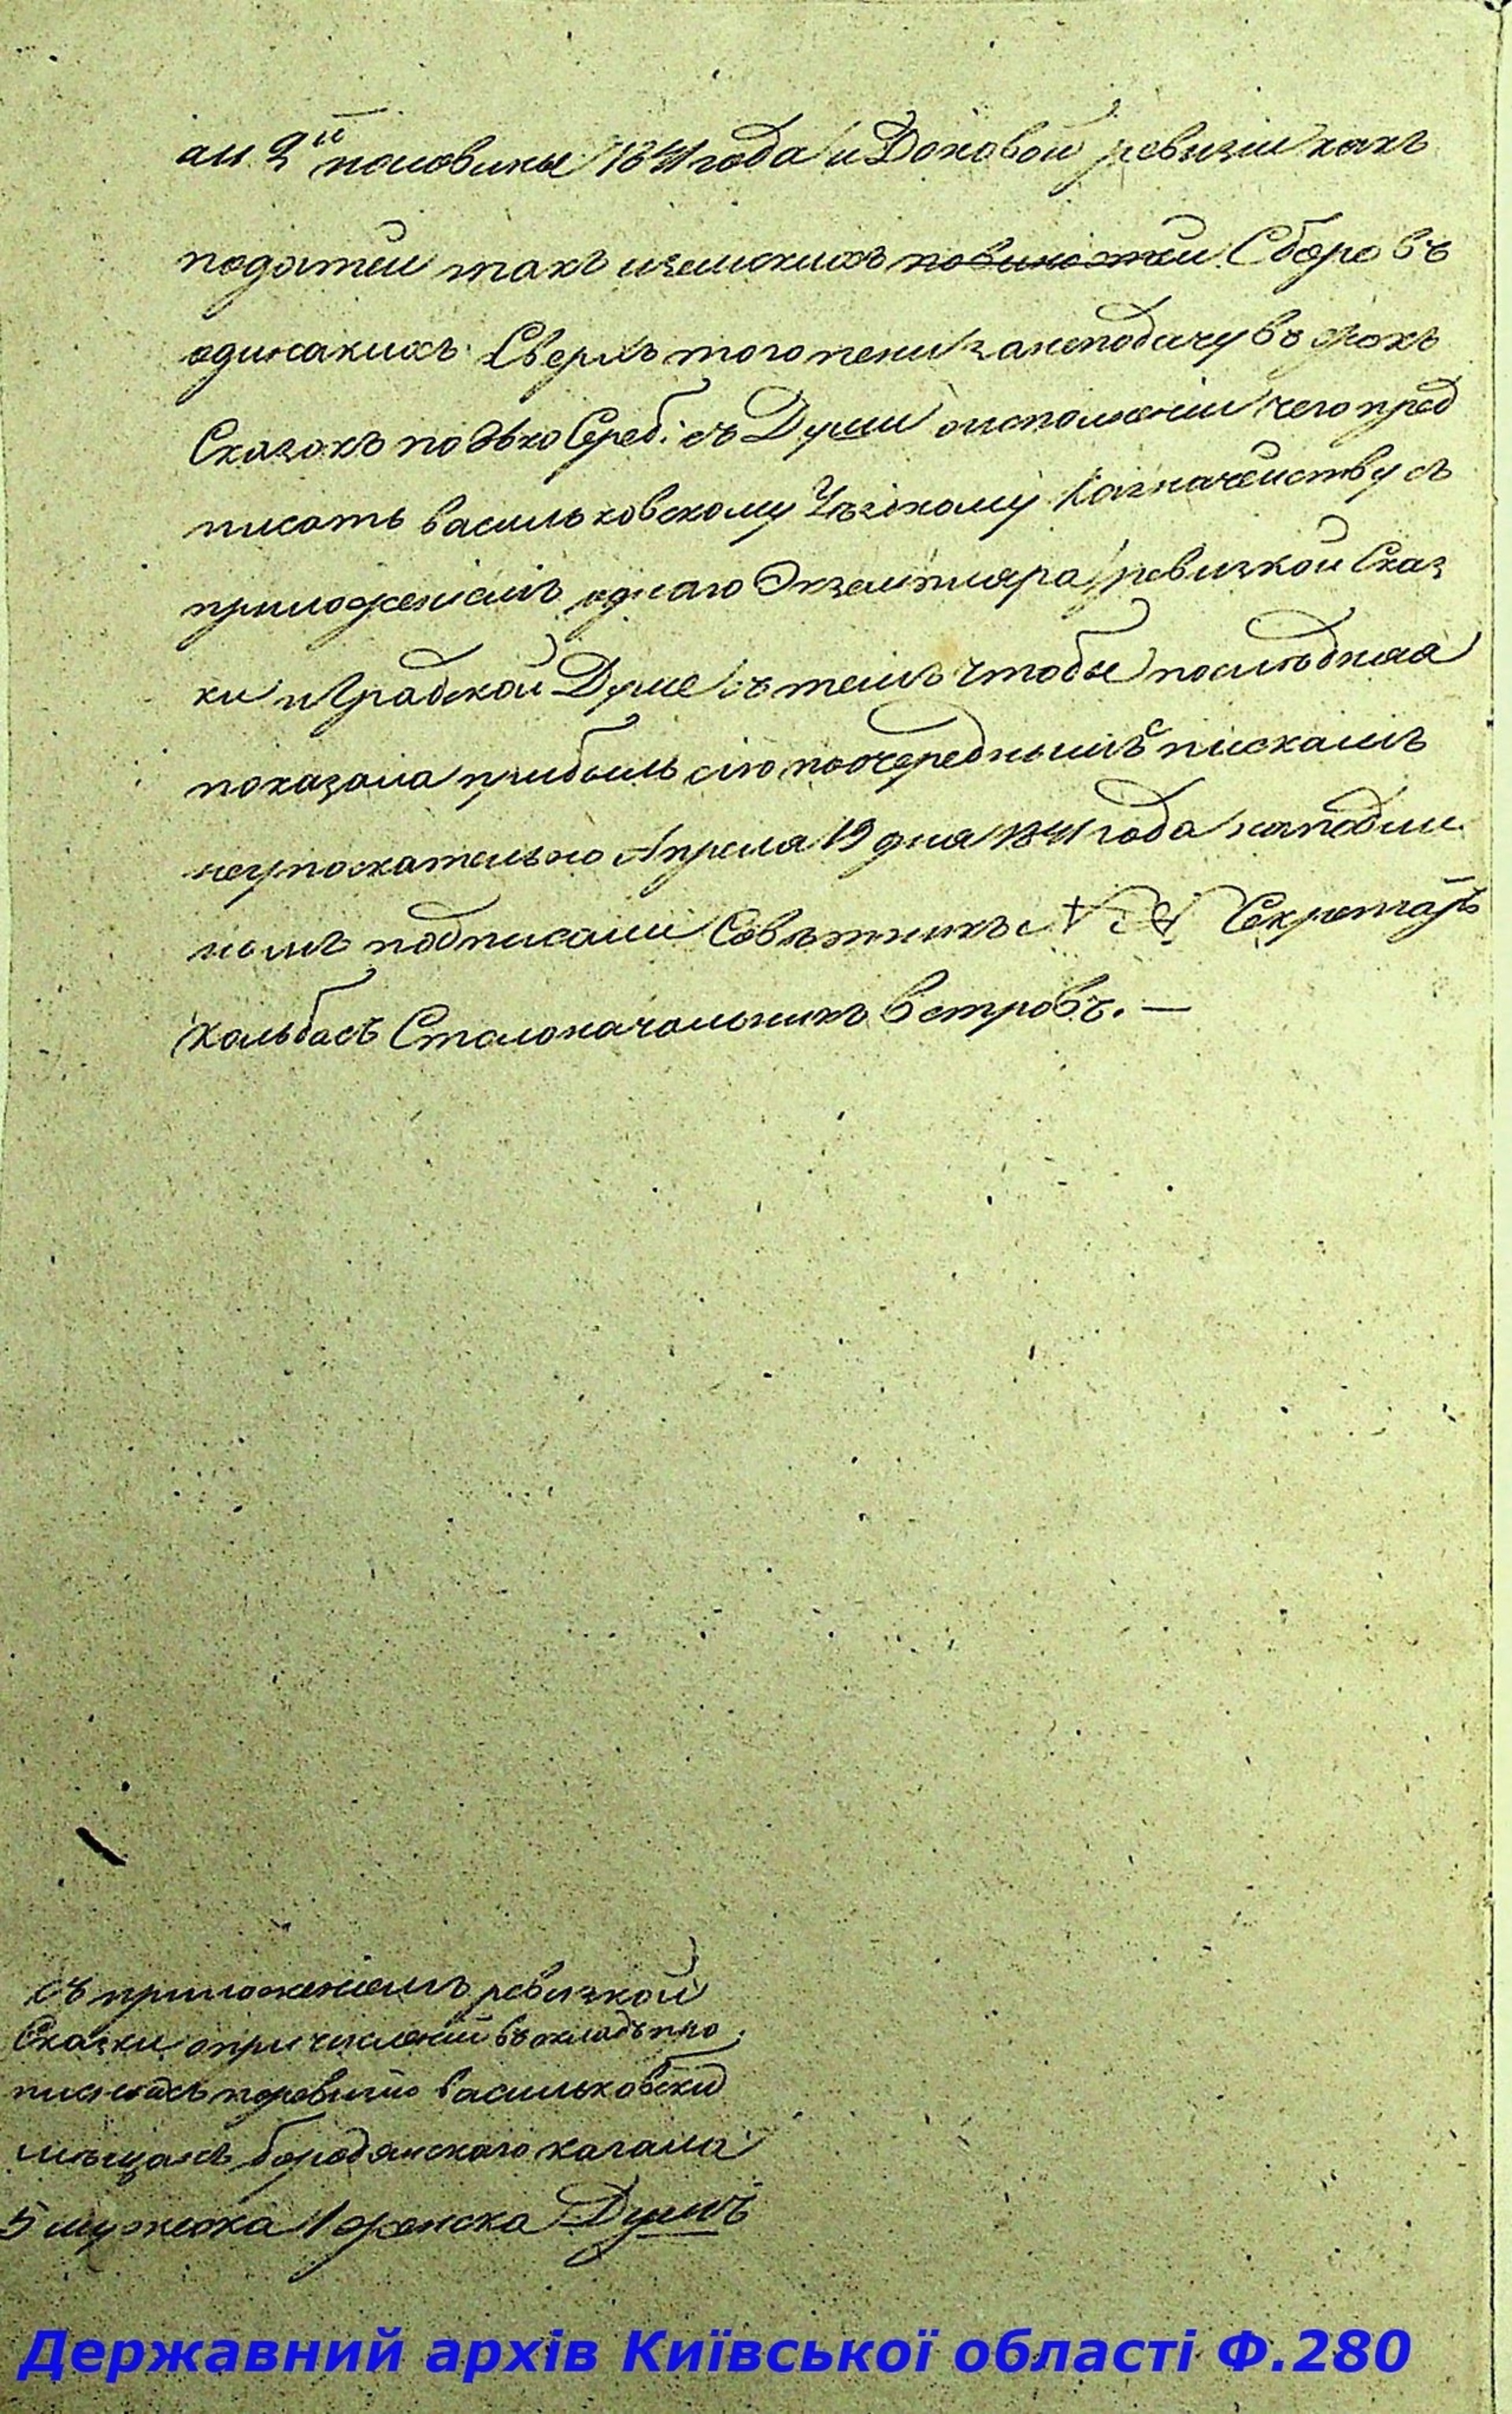 ам 2й половины 1841 года и Доновой ревизіи какъ
податей такъ и земскихъ повиностей Сборовъ
одинакихъ Сверхъ того пени за неподачу въ срокъ
Сказокъ по Сереб: съ Души о исполненіи чего пред
писать Васильковскому Уѣздному Казначейству съ
приложеніемъ однаго Экземпляра ревизкой Сказ
ки и Градской Думе съ темъ чтобы последняя
показала прибыль сію по очереднымъ спискамъ
неупоскательно Апреля 19 дня 1841 года на подлин
номъ подписали Советникъ Секретарь
Кольбасъ Столоначальникъ Встровъ. —
съ приложеніемъ ревизкой
Сказки о причисленіи въ окладъ про
писныхъ по ревизіи Васильковски
мещанъ бородянскаго кагала
5 мужеска 1 женска Душъ
Державний архів Київської області Ф.280